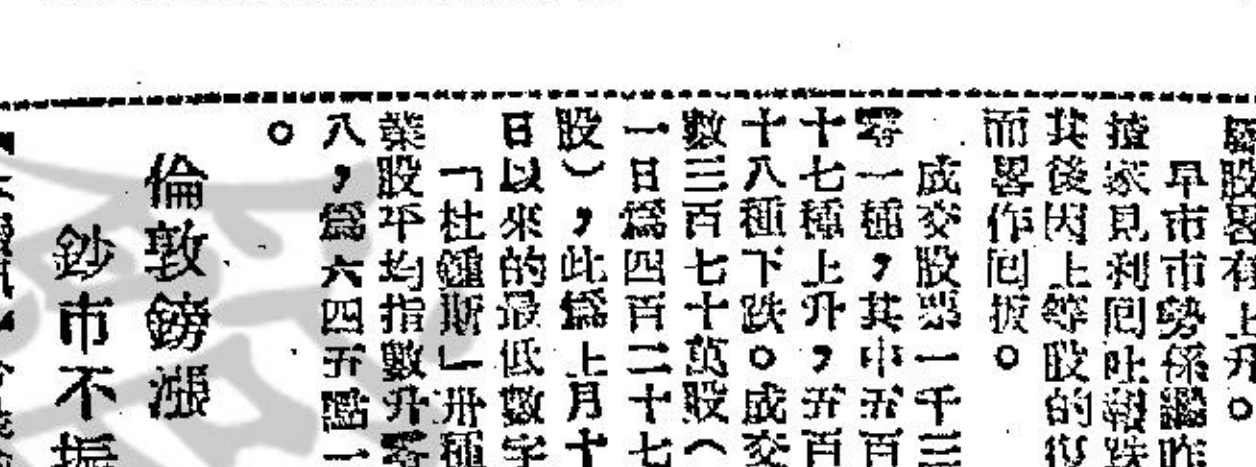 股畧有上升。
早市市勢係繼昨
揸家見利回吐報跌
其後因上等股的復
而畧作回扳。
成交股票一千三
零一種，其中五百
十七種上升，五百
十八種下跌。成交
數三百七十萬股（
一日爲四百二十七
股），此爲上月十
日以來的最低數字
「杜鍾斯」卅種
業股平均指數升零
八，爲六四五點一
。
倫敦鎊漲
鈔市不振